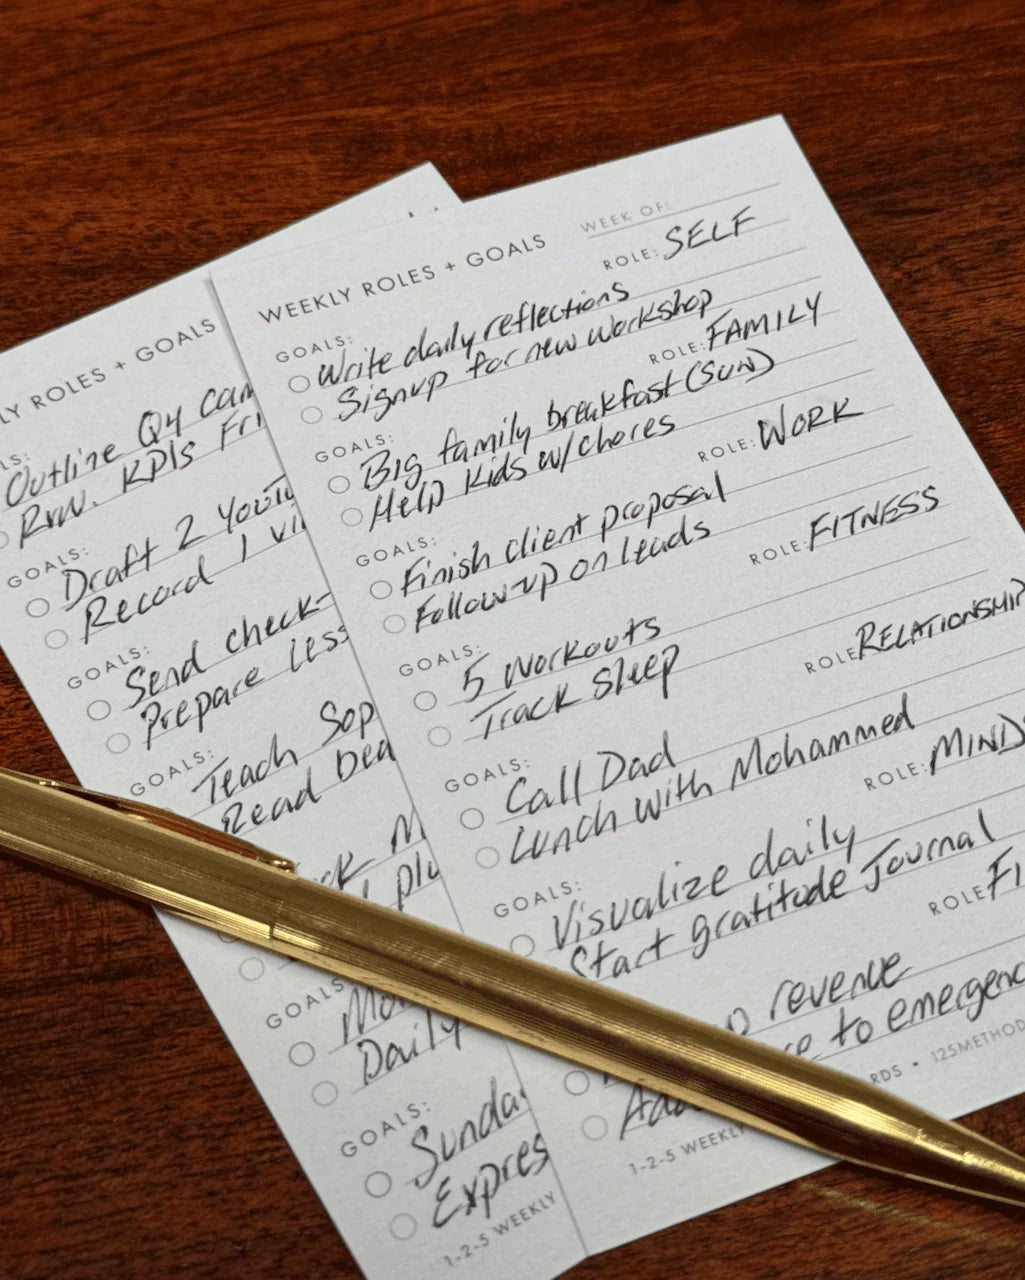 WEEKLY ROLES + GOALS
WEEK OF:
ROLE: SELF
GOALS:
Write daily reflections
Signup for new workshop
ROLE: FAMILY
GOALS:
Big family breakfast (SUN)
Help Kids w/chores
ROLE: WORK
GOALS:
Finish client proposal
Follow-up on leads
ROLE: FITNESS
GOALS:
5 Workouts
Track Sleep
ROLE RELATIONSHIP
GOALS:
Call Dad
Lunch with Mohammed
ROLE: MINDS
GOALS:
Visualize daily
Start gratitude Journal
ROLE FI
revenue
to emergenc
1-2-5 WEEKLY
RDS • 125METHOD
LY ROLES + GOALS
LS:
Outline Q4 Cam
Rvw. KPIs Fri
GOALS:
Draft 2 YouTu
Record 1 vi
GOALS:
Send check-
Prepare less
GOALS:
Teach Sop
Read Dea
plu
GOALS
Mo
Daily
GOALS:
Sunda
Expres
1-2-5 WEEKLY